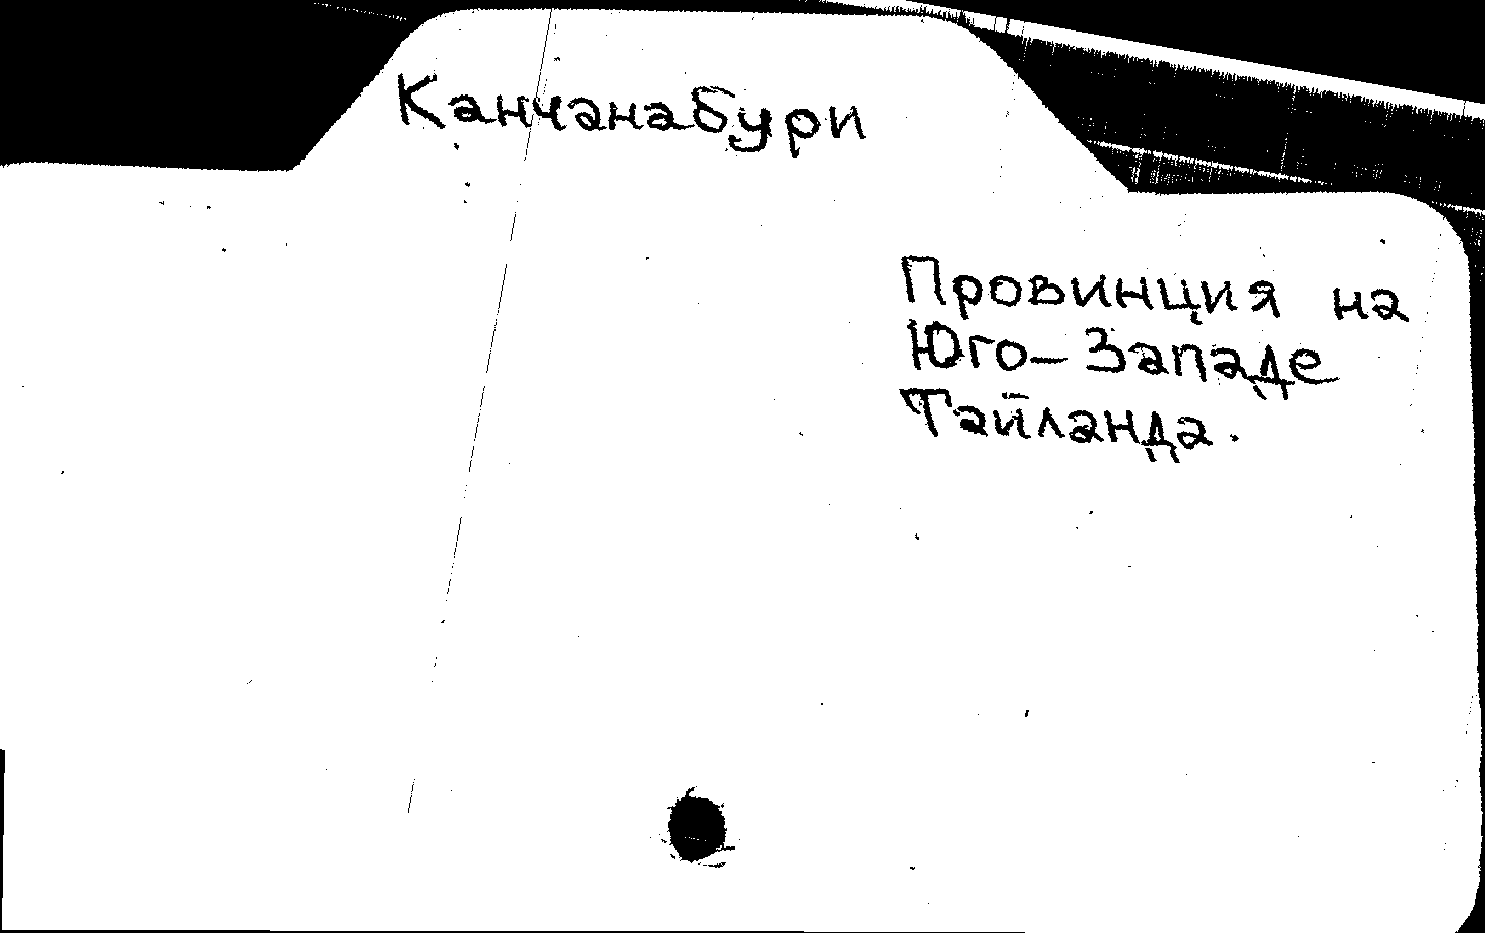 Канчанабури
Провинция на
Юго-Западе
Тайланда.